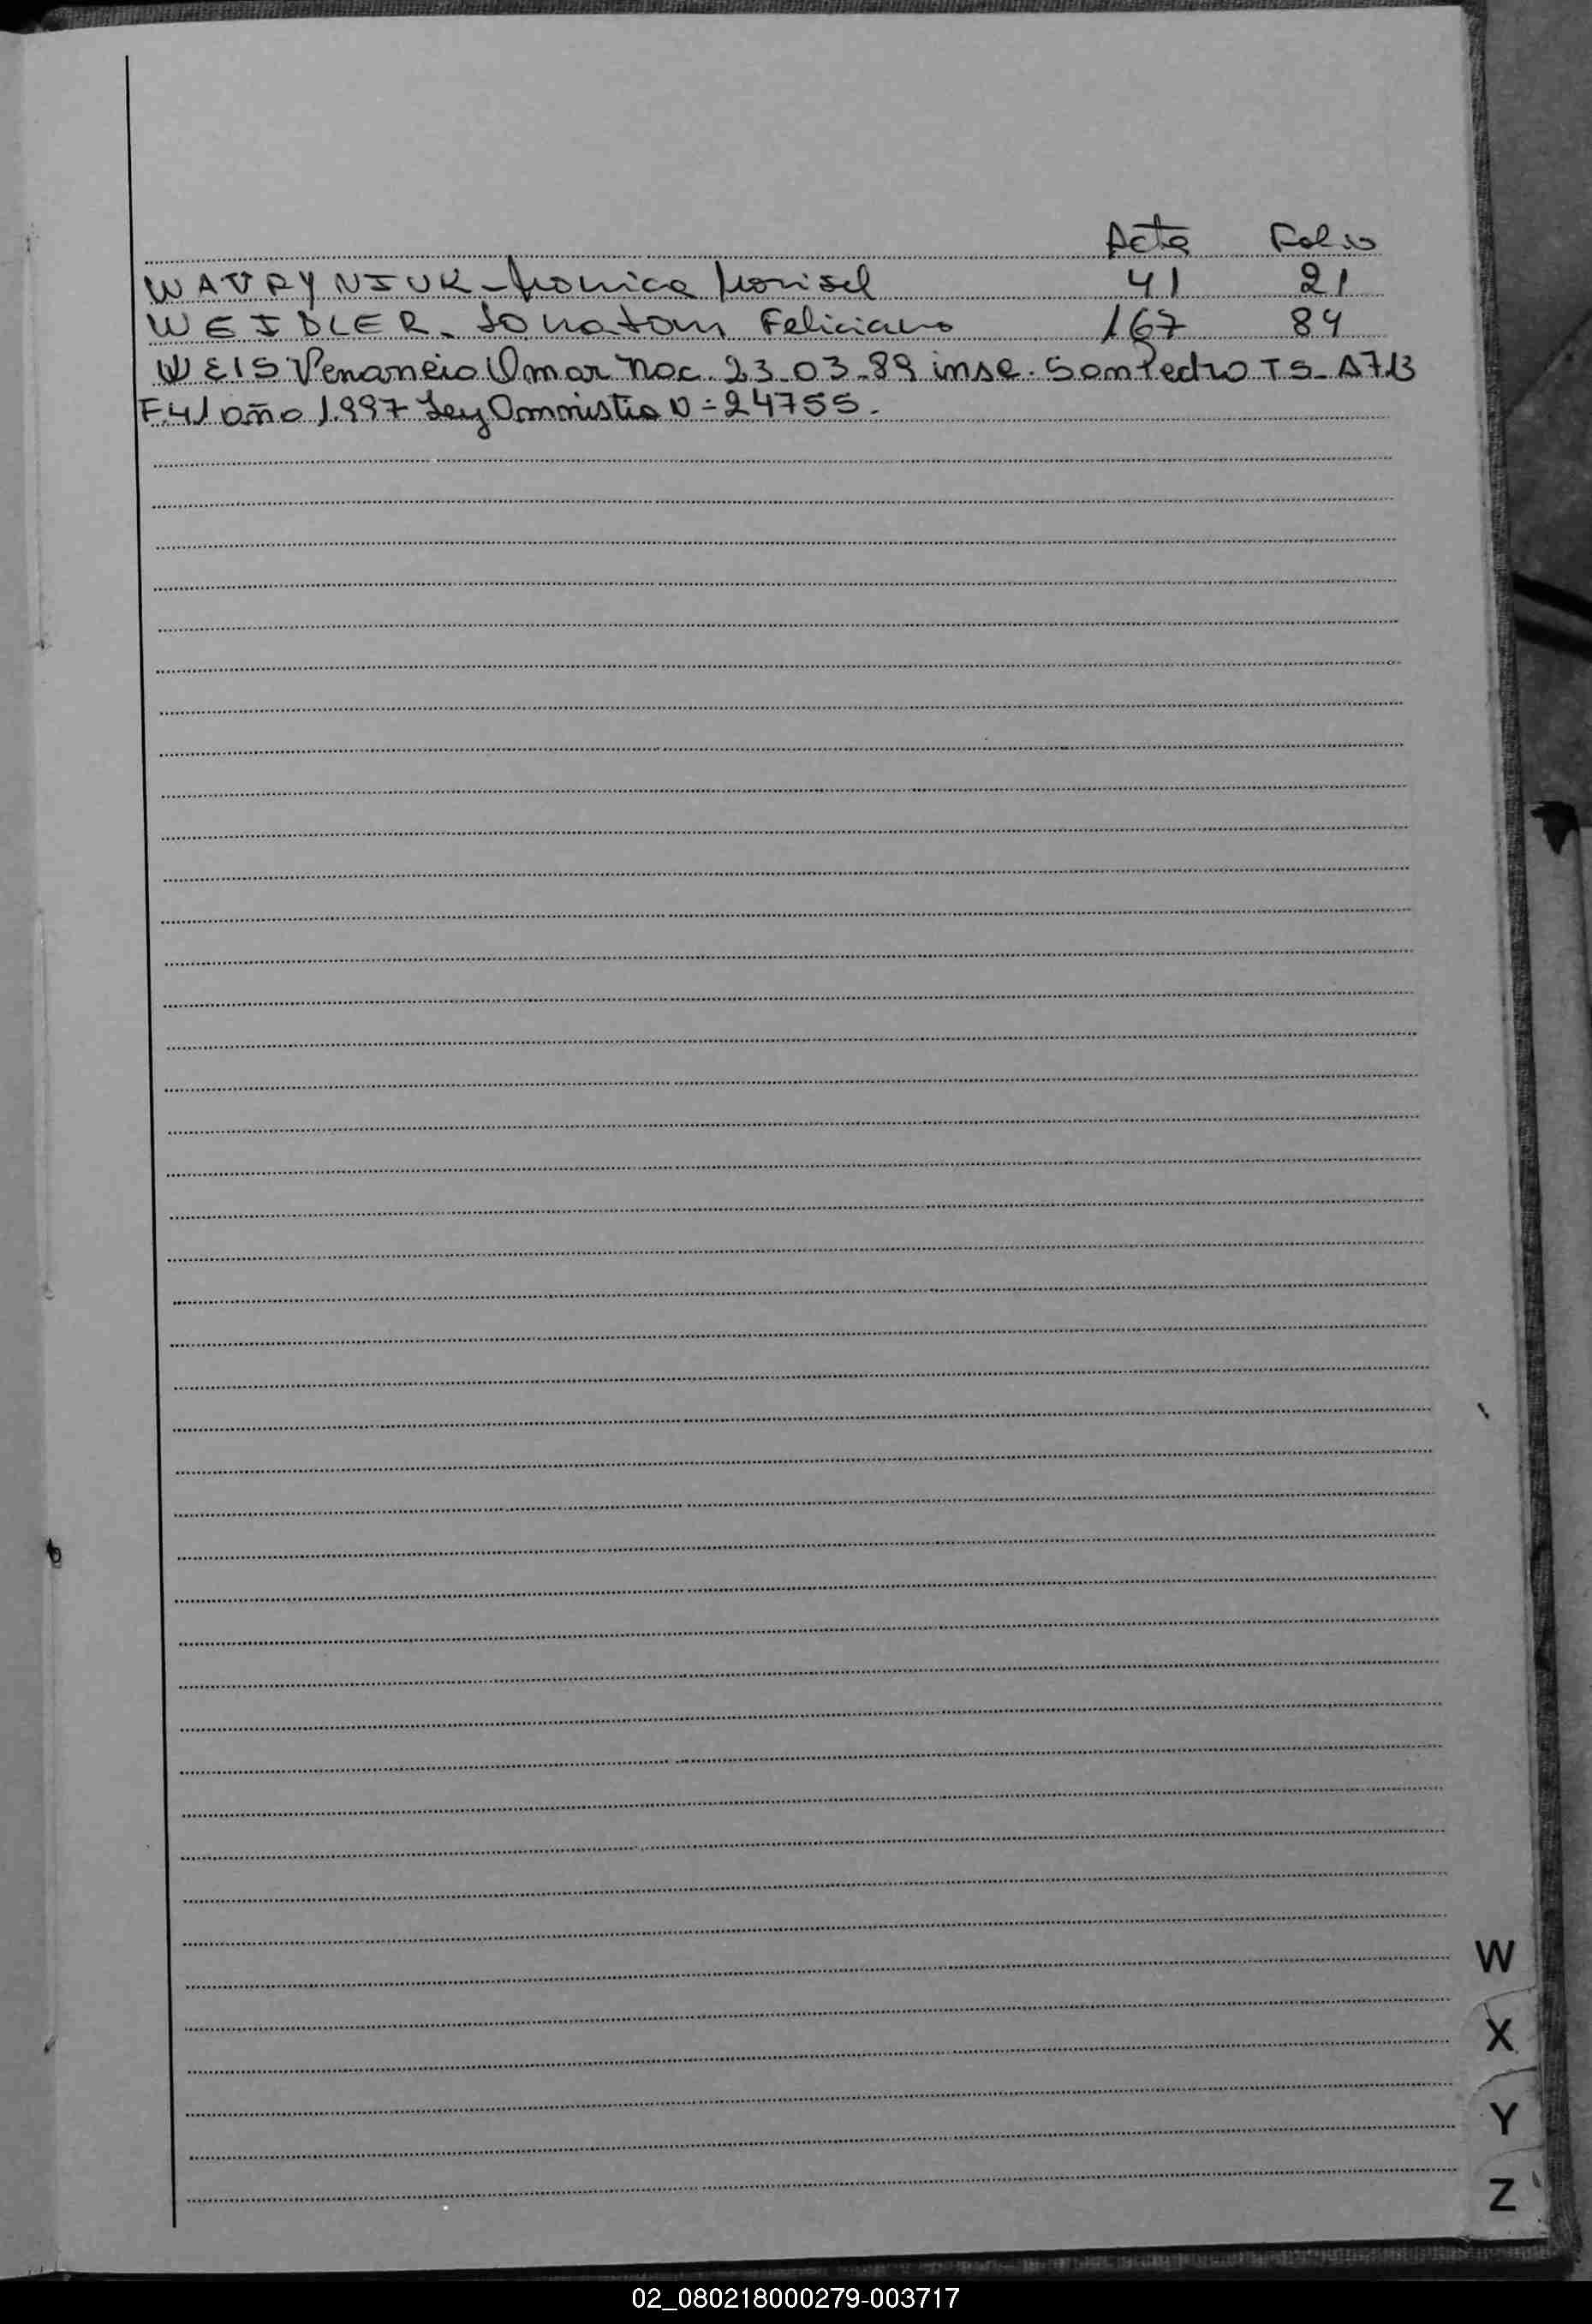 Acta Folio
WAVRYNIUK - Monica Marisel 41 21
WEIDLER - Jonatan Feliciano 167 84
WEIS Venancio Omar Nac. 23-03-89 insc. San Pedro T5- A713
F.41 año 1.997 Ley Amnistia N=24755.
W
X
Y
Z
02_080218000279-003717